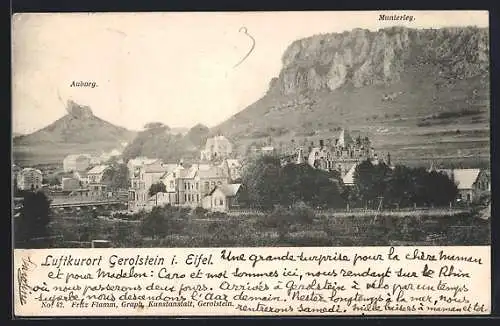 Munterley.
Auburg.
3
Luftkurort Gerolstein i. Eifel. Une grande surprise pour la chère Maman
et pour Madelon: Caro et moi sommes ici, nous rendant sur le Rhin
où nous passerons deux jours. Arrivés à Gerolstein à vélo par un temps
superbe nous descendons l'Aar demain. Restez longtemps à la mer, nous
No: 42. Fritz Flamm, Graph. Kunstanstalt, Gerolstein. rentrerons Samedi.